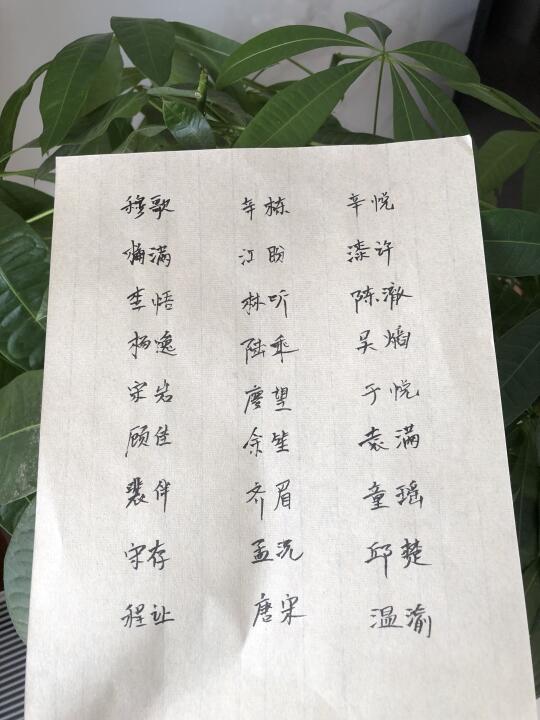 穆歌 辛栋 辛悦
桶满 江盼 漆许
李悟 林听 陈澈
杨逸 陆乘 吴熠
宋岩 廖望 于悦
顾佳 余笙 袁满
裴伴 齐眉 童瑶
宋存 孟沉 邱楚
程让 唐宋 温渝